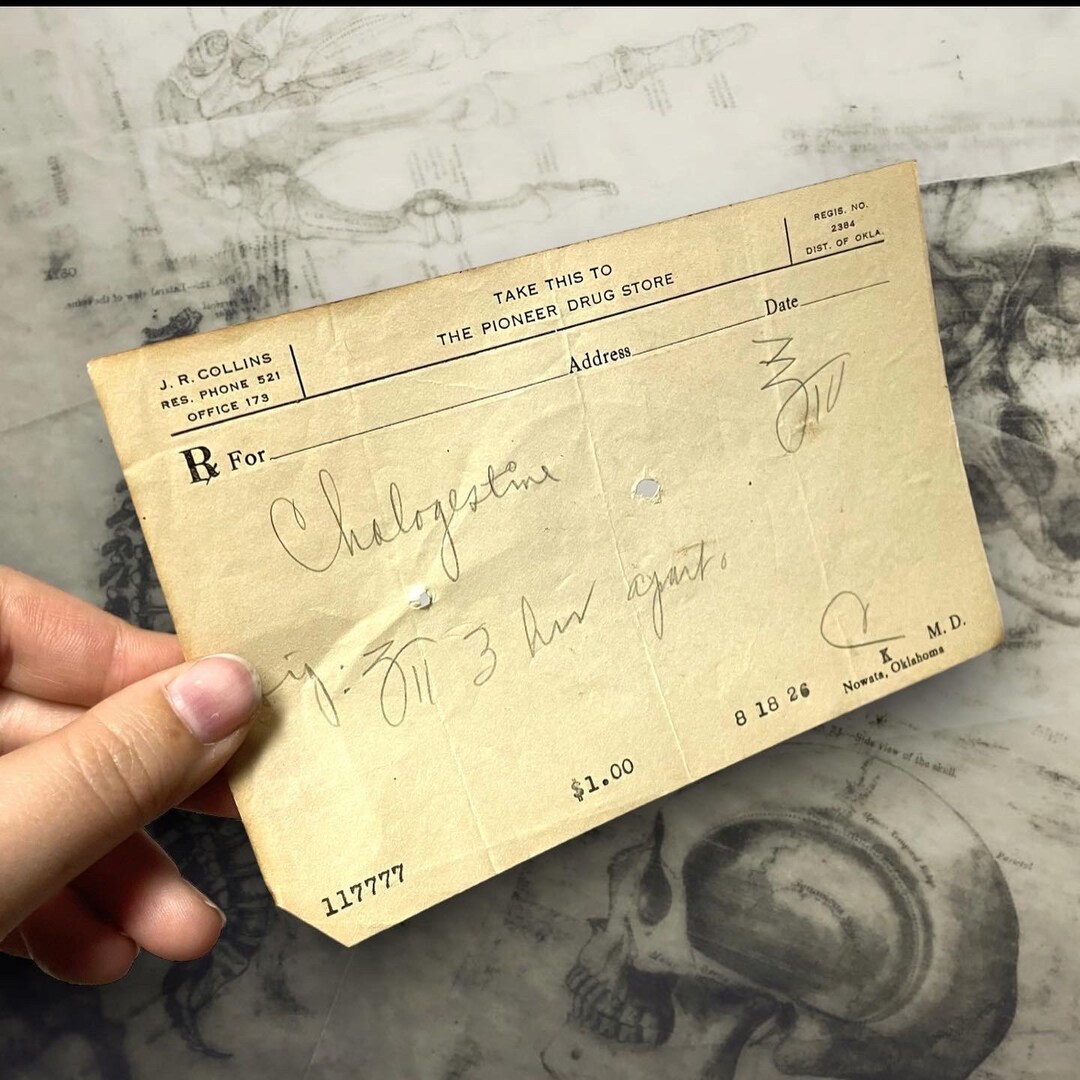 REGIS. NO.
2384
DIST. OF OKLA.
TAKE THIS TO
THE PIONEER DRUG STORE
J. R. COLLINS
RES. PHONE 521
OFFICE 173
Date
Address
℞ For
Chologestine ℥iii
Sig: ℥ii 3 hrs apart.
K M. D.
Nowata, Oklahoma
8 18 26
$1.00
117777
Side view of the skull.